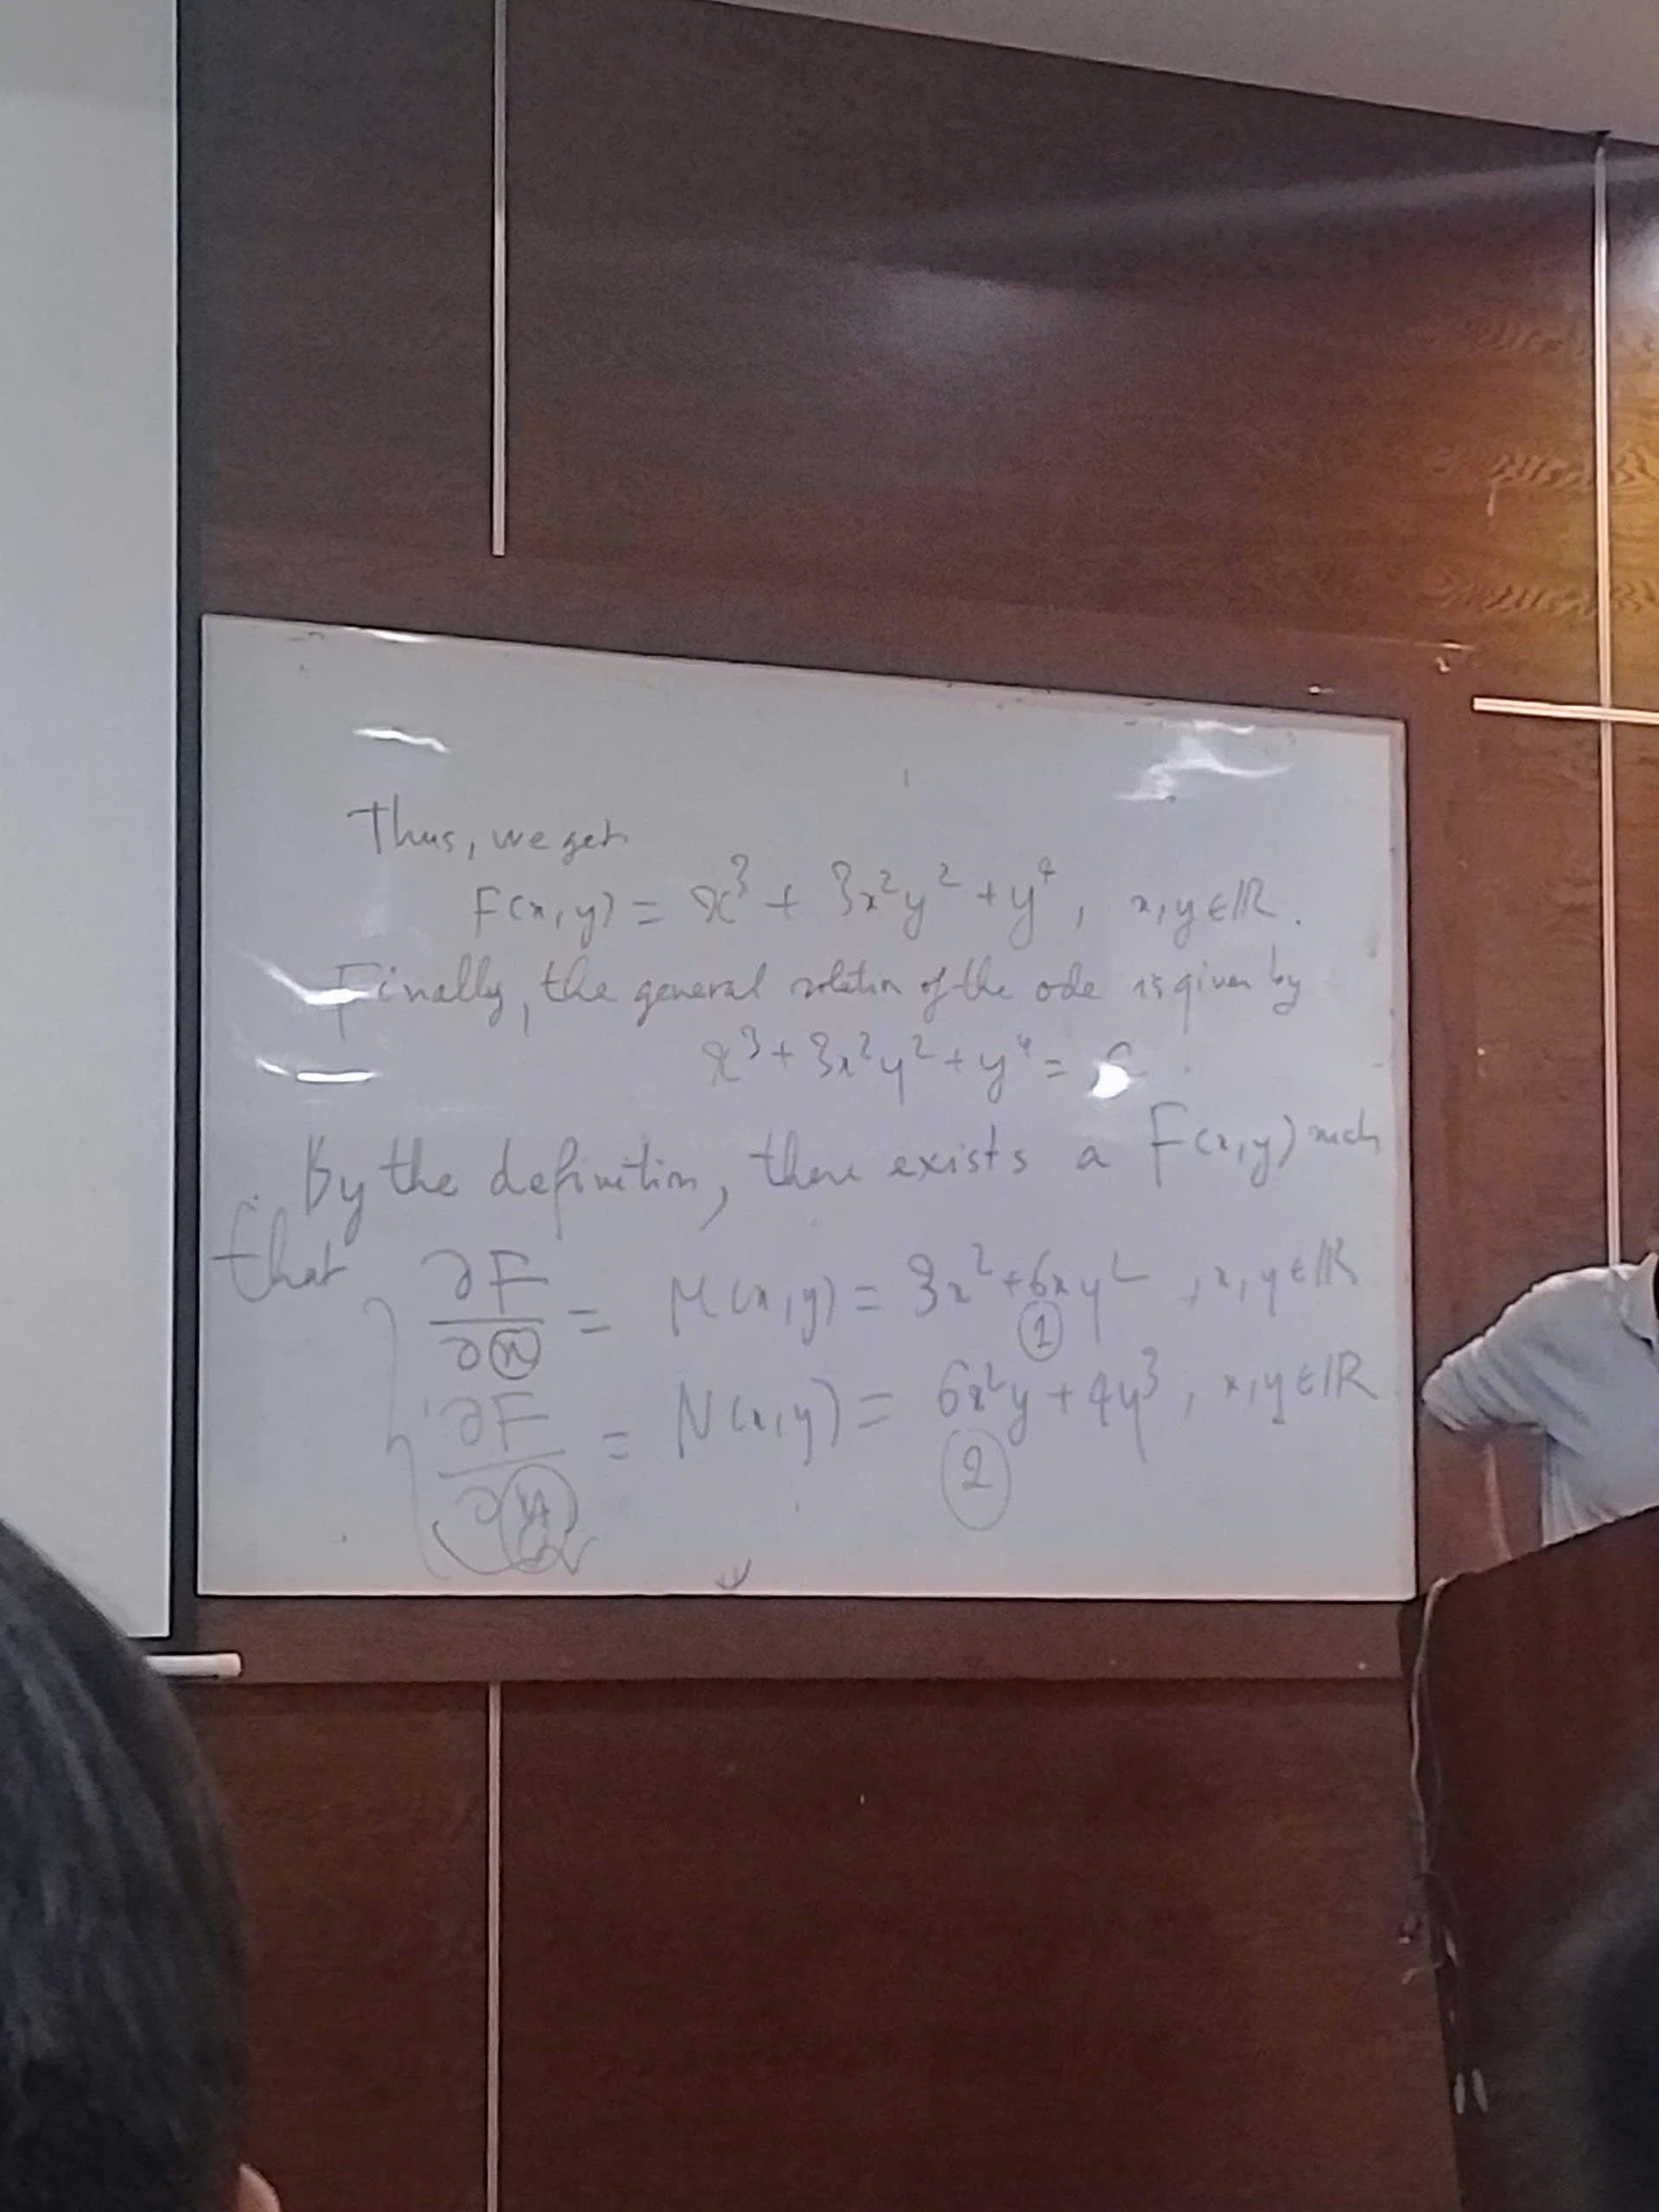 Thus, we get
F(x,y) = x³ + 3x²y² + y⁴, x,y ∈ ℝ.
Finally, the general solution of the ode is given by
x³ + 3x²y² + y⁴ = C.
By the definition, there exists a F(x,y) such
that
∂F/∂x = M(x,y) = 3x² + 6xy², x,y ∈ ℝ
①
∂F/∂y = N(x,y) = 6x²y + 4y³, x,y ∈ ℝ
②